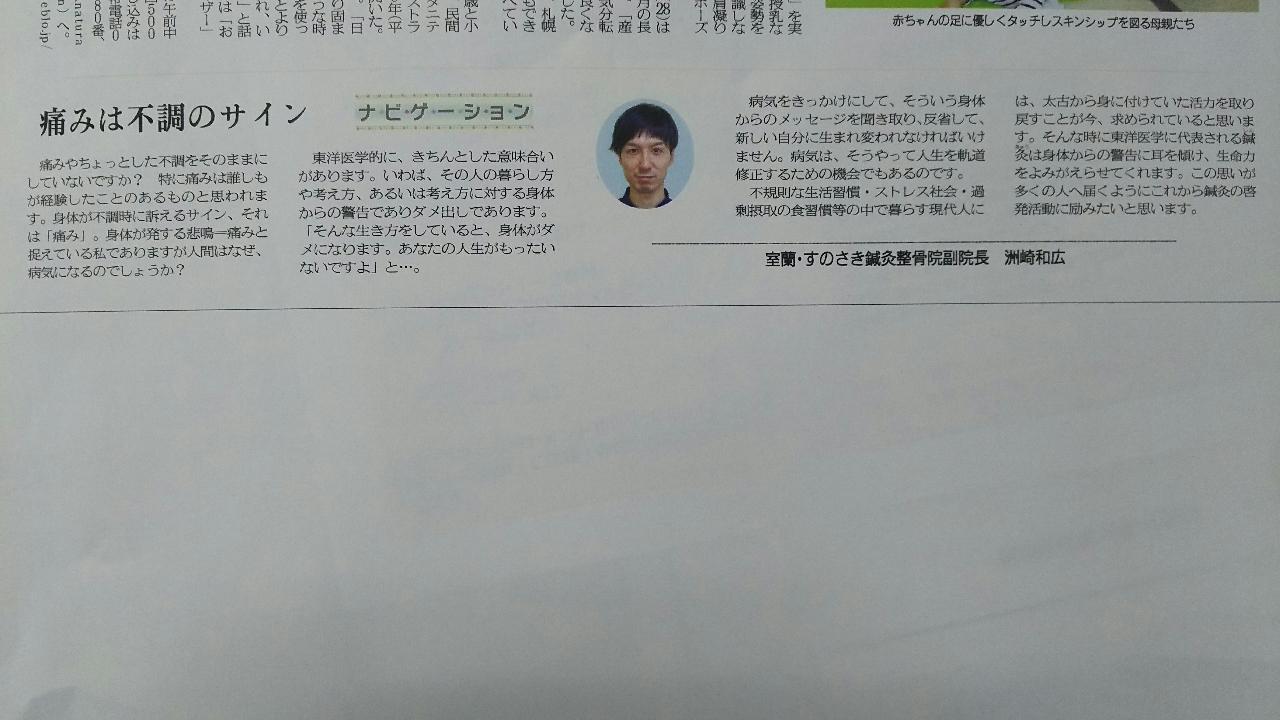 赤ちゃんの足に優しくタッチしスキンシップを図る母親たち
痛みは不調のサイン
ナビ・ゲ・ー・シ・ョ・ン
痛みやちょっとした不調をそのままに
していないですか？　特に痛みは誰しも
が経験したことのあるものと思われま
す。身体が不調時に訴えるサイン、それ
は「痛み」。身体が発する悲鳴＝痛みと
捉えている私でありますが人間はなぜ、
病気になるのでしょうか？
東洋医学的に、きちんとした意味合い
があります。いわば、その人の暮らし方
や考え方、あるいは考え方に対する身体
からの警告でありダメ出しであります。
「そんな生き方をしていると、身体がダ
メになります。あなたの人生がもったい
ないですよ」と…。
病気をきっかけにして、そういう身体
からのメッセージを聞き取り、反省して、
新しい自分に生まれ変われなければいけ
ません。病気は、そうやって人生を軌道
修正するための機会でもあるのです。
不規則な生活習慣・ストレス社会・過
剰摂取の食習慣等の中で暮らす現代人に
は、太古から身に付けていた活力を取り
戻すことが今、求められていると思いま
す。そんな時に東洋医学に代表される鍼
灸は身体からの警告に耳を傾け、生命力
をよみがえらせてくれます。この思いが
多くの人へ届くようにこれから鍼灸の啓
発活動に励みたいと思います。
室蘭・すのさき鍼灸整骨院副院長　洲崎和広